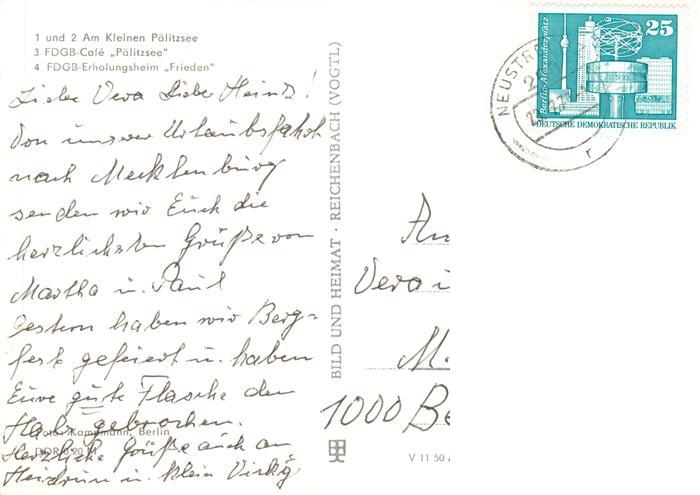 1 und 2 Am Kleinen Pälitzsee
3 FDGB-Café „Pälitzsee"
4 FDGB-Erholungsheim „Frieden"
Liebe Vera Liebe Heinz!
Von unserer Urlaubsfahrt
nach Mecklenburg
senden wir Euch die
herzlichsten Grüße von
Martha u. Paul
Gestern haben wir Berg=
fest gefeiert u. haben
Eure gute Flasche den
Hals gebrochen.
Herzliche Grüße auch an
Heidrun u. klein
Foto: Kampmann, Berlin
DDR 0,20 M
BILD UND HEIMAT · REICHENBACH (VOGTL)
V 11 50
25
Berlin-Alexanderplatz
DEUTSCHE DEMOKRATISCHE REPUBLIK
NEUSTR
r
An
Vera
1000 Be